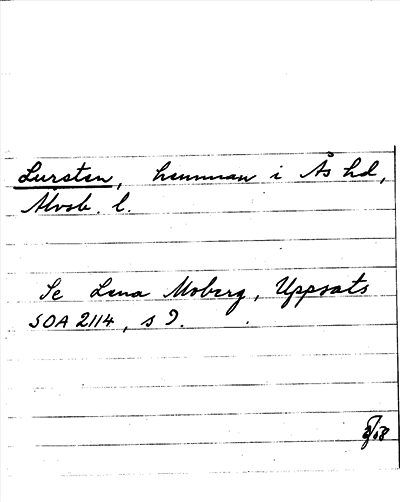 Lursten, hemman i Ås hd,
Älvsb. l.
Se Lena Moberg, Uppsats
SOA 2114, s 9.